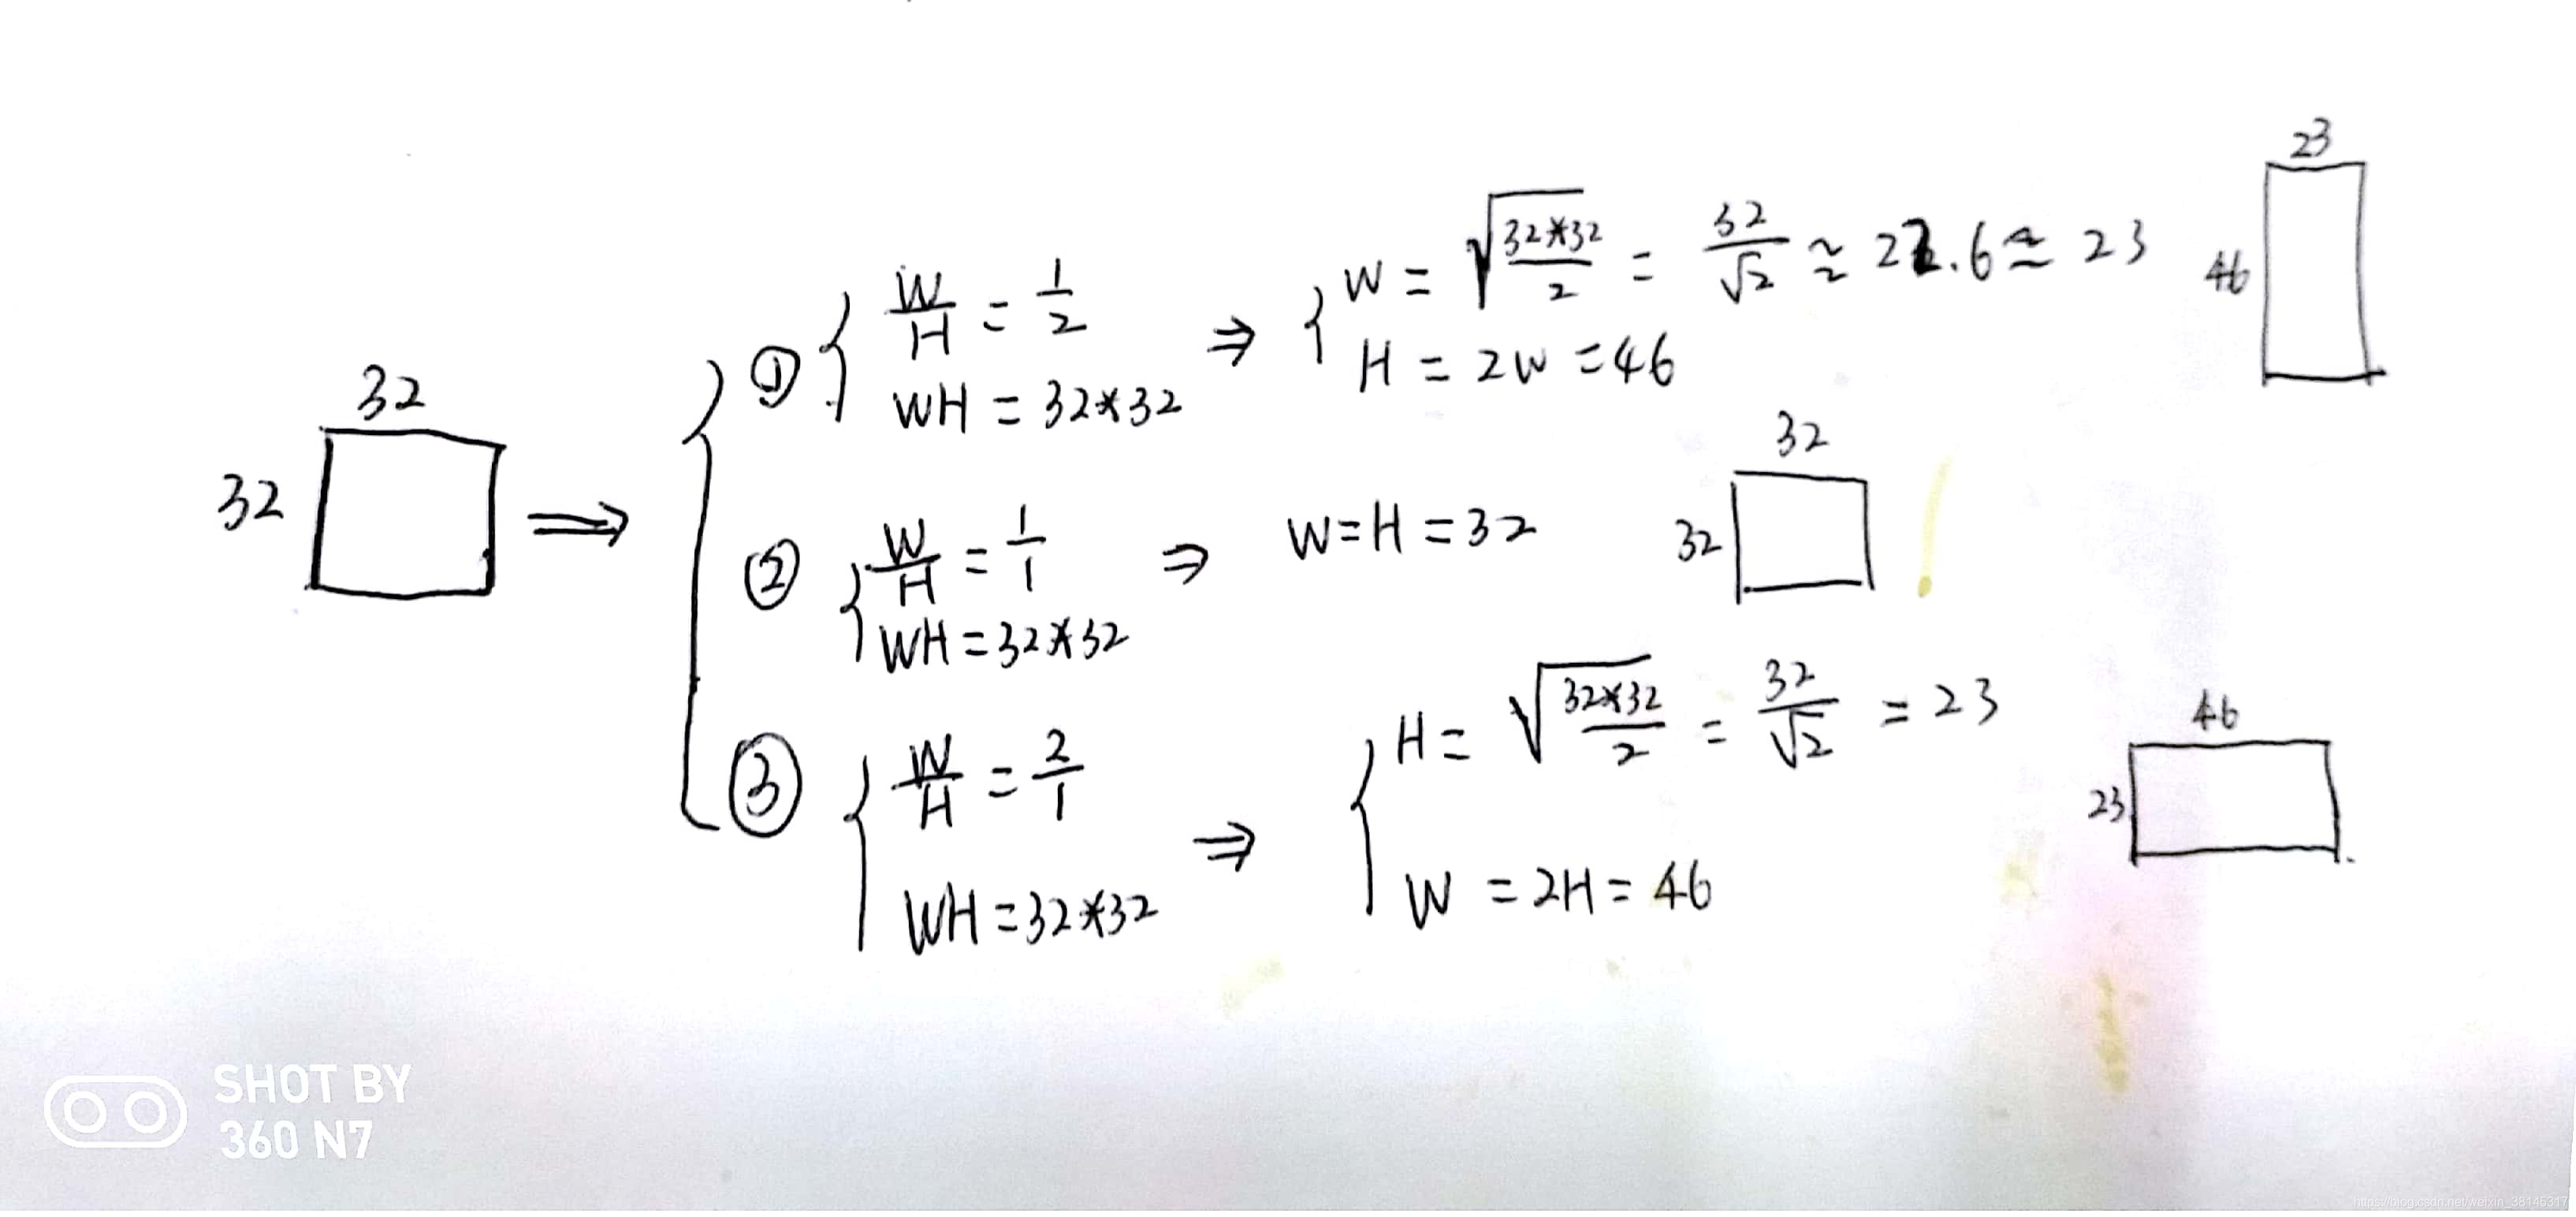 32
32
⇒
① { W/H = 1/2
WH = 32*32
⇒ { W = √(32*32/2) = 32/√2 ≈ 22.6 ≈ 23
H = 2W = 46
23
46
② { W/H = 1/1
WH = 32*32
⇒ W = H = 32
32
32
③ { W/H = 2/1
WH = 32*32
⇒ { H = √(32*32/2) = 32/√2 = 23
W = 2H = 46
46
23
SHOT BY
360 N7
https://blog.csdn.net/weixin_38145317